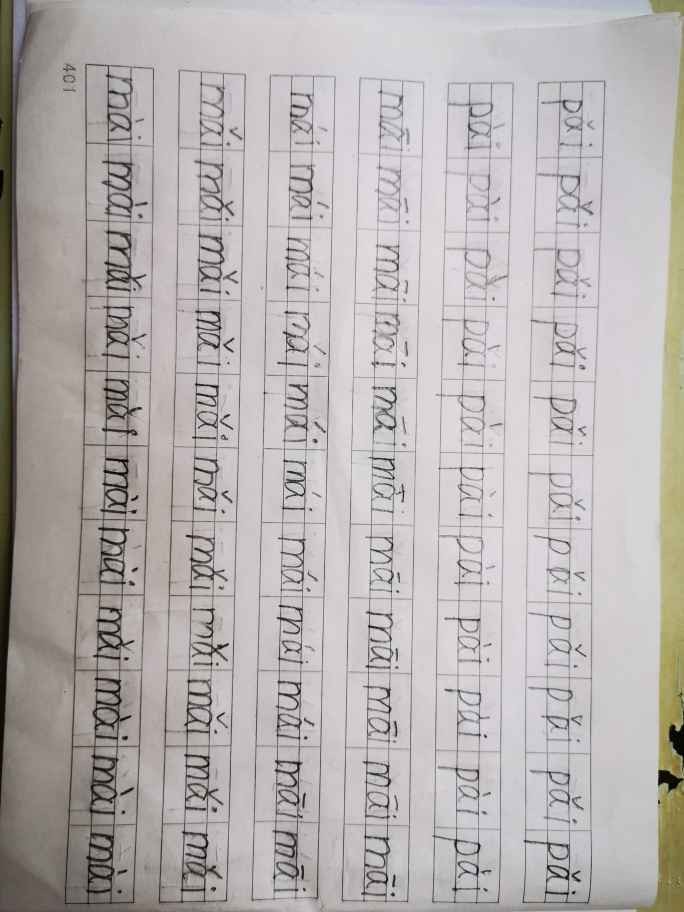 pǎi pǎi pǎi pǎi pǎi pǎi pǎi pǎi pǎi pǎi pǎi
pài pài pài pài pài pài pài pài pài pài pài
māi māi māi māi māi māi māi māi māi māi māi
mái mái mái mái mái mái mái mái mái māi māi
mǎi mǎi mǎi mǎi mǎi mǎi mǎi mǎi mǎi mǎi mǎi
mài mài mài mài mài mài mài mài mài mài mài
401